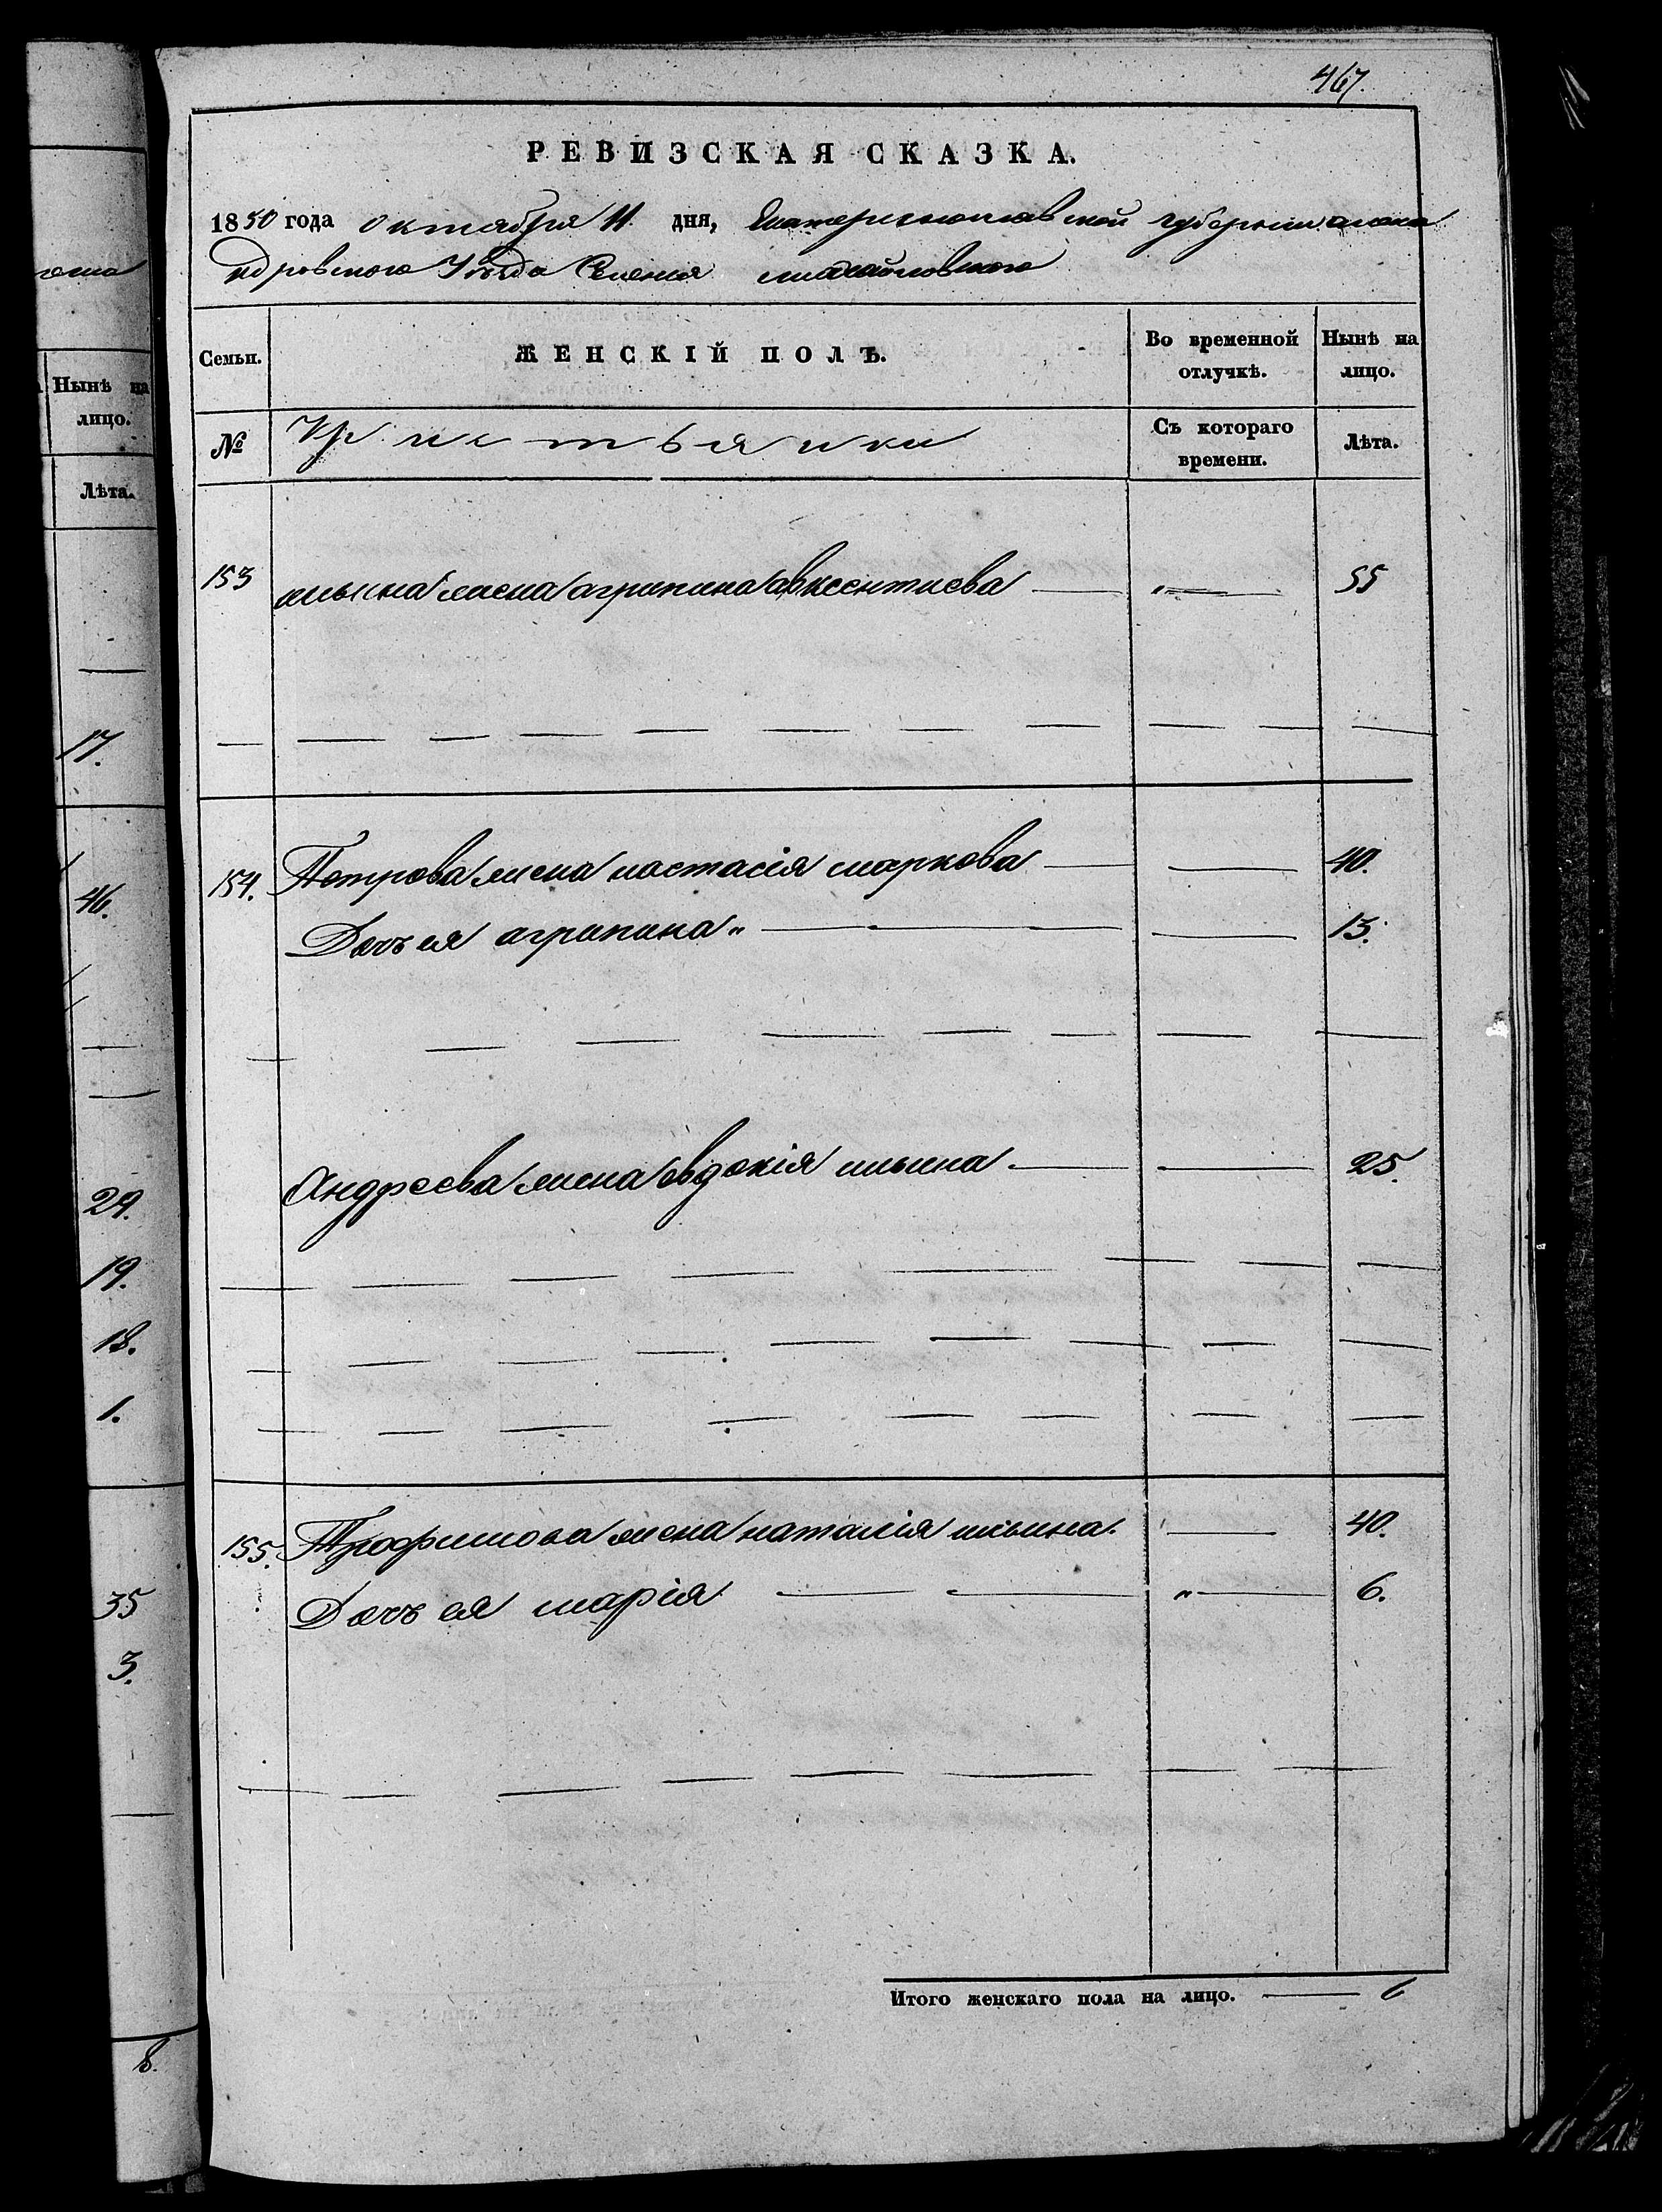 467.
РЕВИЗСКАЯ СКАЗКА.
1850 года октября 11 дня, Екатеринославской губернии алекса
ндровского Уѣзда Селенія михайловского
Семьи.
ЖЕНСКІЙ ПОЛЪ.
Во временной отлучкѣ.
Нынѣ на лицо.
№
Кристьянки
Съ котораго времени.
Лѣта.
153 ильина жена агрипина авксентиева — „— 55
154. Петрова жена настасія маркова — — 40.
Дочь ея агрипина „ — — — 13.
Андреева жена евдокія ильина — — 25.
155. Трофимова жена наталія ильина. — 40.
Дочь ея марія — — „— 6.
Итого женскаго пола на лицо. — 6
Нынѣ на
лицо.
Лѣта.
17.
46.
29.
19.
18.
1.
35
3.
8.